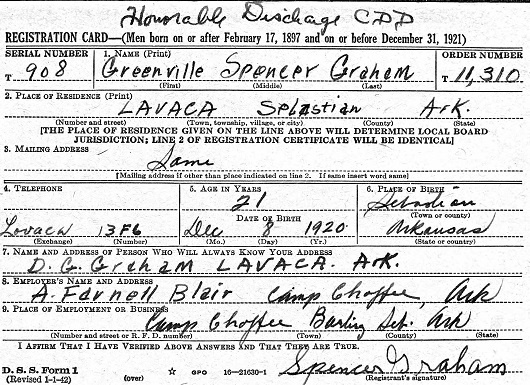 Honorable Discharge CDD
REGISTRATION CARD—(Men born on or after February 17, 1897 and on or before December 31, 1921)
SERIAL NUMBER 1. NAME (Print) ORDER NUMBER
T 908 Greenville Spencer Graham T 11,310
(First) (Middle) (Last)
2. PLACE OF RESIDENCE (Print)
LAVACA Sebastian Ark.
(Number and street) (Town, township, village, or city) (County) (State)
[THE PLACE OF RESIDENCE GIVEN ON THE LINE ABOVE WILL DETERMINE LOCAL BOARD
JURISDICTION; LINE 2 OF REGISTRATION CERTIFICATE WILL BE IDENTICAL]
3. MAILING ADDRESS
Same
[Mailing address if other than place indicated on line 2. If same insert word same]
4. TELEPHONE 5. AGE IN YEARS 6. PLACE OF BIRTH
21 Sebastian
DATE OF BIRTH (Town or county)
Lavaca 13F6 Dec 8 1920. Arkansas
(Exchange) (Number) (Mo.) (Day) (Yr.) (State or country)
7. NAME AND ADDRESS OF PERSON WHO WILL ALWAYS KNOW YOUR ADDRESS
D. G. Graham LAVACA. Ark.
8. EMPLOYER'S NAME AND ADDRESS
A. Farnell Blair Camp Chaffee, Ark
9. PLACE OF EMPLOYMENT OR BUSINESS
Camp Chaffee Barling Seb. Ark
(Number and street or R. F. D. number) (Town) (County) (State)
I AFFIRM THAT I HAVE VERIFIED ABOVE ANSWERS AND THAT THEY ARE TRUE.
D. S. S. Form 1
(Revised 1-1-42) (over) ☆ GPO 16—21630-1 Spencer Graham
(Registrant's signature)